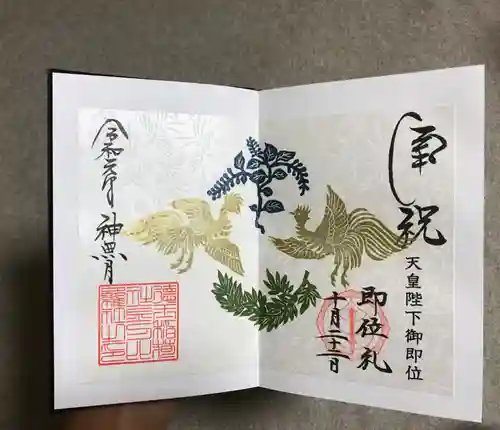 奉祝
天皇陛下御即位
即位礼
十月二十二日
令和元年 神無月